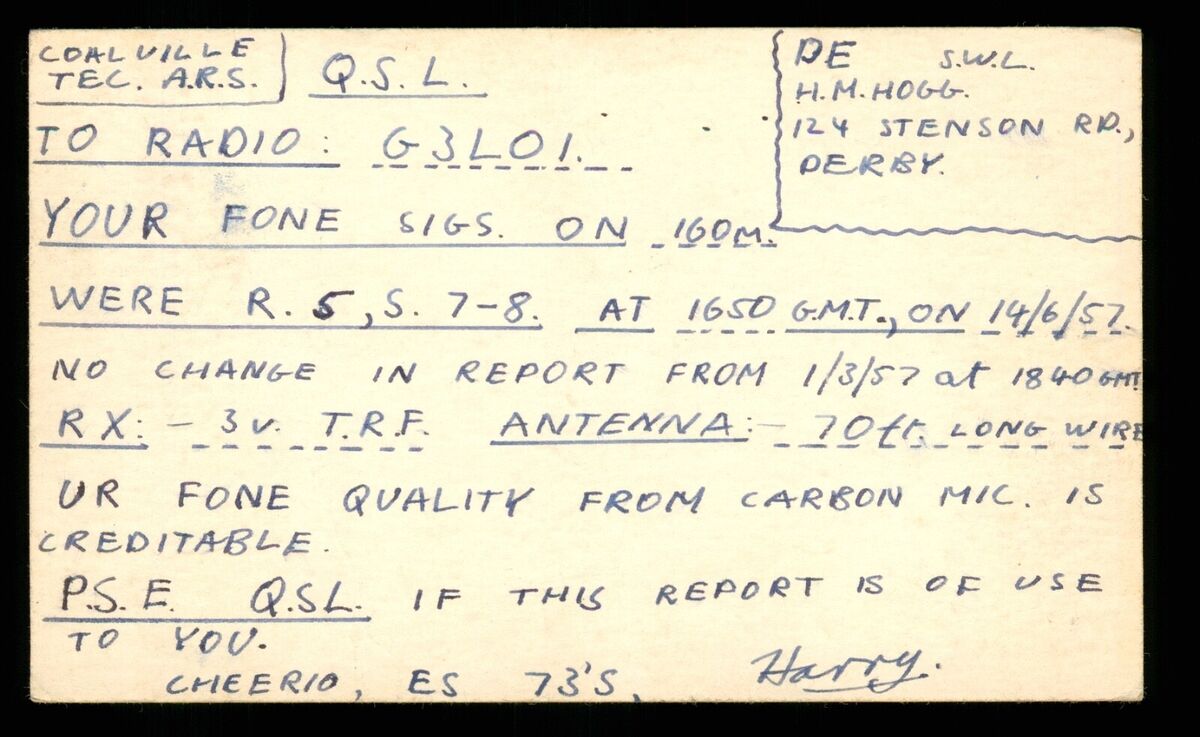 COALVILLE
TEC. A.R.S.
Q.S.L.
DE S.W.L.
H.M.HOGG.
124 STENSON RD.,
DERBY.
TO RADIO: G3LOI.
YOUR FONE SIGS. ON 160M.
WERE R. 5, S. 7-8. AT 1650 G.M.T., ON 14/6/57.
NO CHANGE IN REPORT FROM 1/3/57 at 1840 GMT.
RX:- 3 v. T.R.F. ANTENNA:- 70ft. LONG WIRE
UR FONE QUALITY FROM CARBON MIC. IS
CREDITABLE.
P.S.E. Q.S.L. IF THIS REPORT IS OF USE
TO YOU.
CHEERIO, ES 73'S,
Harry.